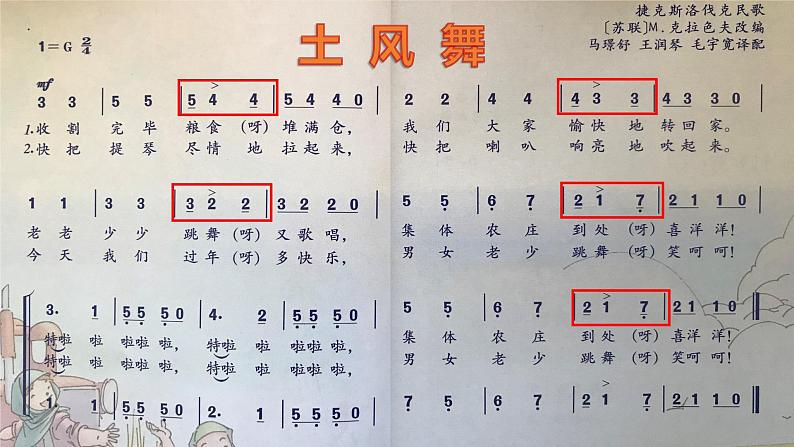 土风舞
捷克斯洛伐克民歌
〔苏联〕M.克拉色夫改编
马璟舒 王润琴 毛宇宽译配
1=G 2/4
mf
3 3 5 5 | 5 4 4 | 5 4 4 0 | 2 2 4 4 | 4 3 3 | 4 3 3 0 |
1.收 割 完 毕 粮 食 (呀) 堆 满 仓, 我 们 大 家 愉 快 地 转 回 家。
2.快 把 提 琴 尽 情 地 拉 起 来, 快 把 喇 叭 响 亮 地 吹 起 来。
1 1 3 3 | 3 2 2 | 3 2 2 0 | 5 5 6 7 | 2 1 7 | 2 1 1 0 |
老 老 少 少 跳 舞 (呀) 又 歌 唱, 集 体 农 庄 到 处 (呀) 喜 洋 洋!
今 天 我 们 过 年 (呀) 多 快 乐, 男 女 老 少 跳 舞 (呀) 笑 呵 呵!
3. 1 | 5 5 5 0 | 4. 1 | 5 5 5 0 | 5 5 6 7 | 2 1 7 | 2 1 1 0
特啦 啦 啦 啦 啦, 特啦 啦 啦 啦 啦, 集 体 农 庄 到 处 (呀) 喜 洋 洋!
特啦 啦 啦 啦 啦, 特啦 啦 啦 啦 啦, 男 女 老 少 跳 舞 (呀) 笑 呵 呵!
1. 1 | 5 5 5 0 | 2. 1 | 5 5 5 0 | 5 5 5 5 | 5 5 5 | 5 5 5 0